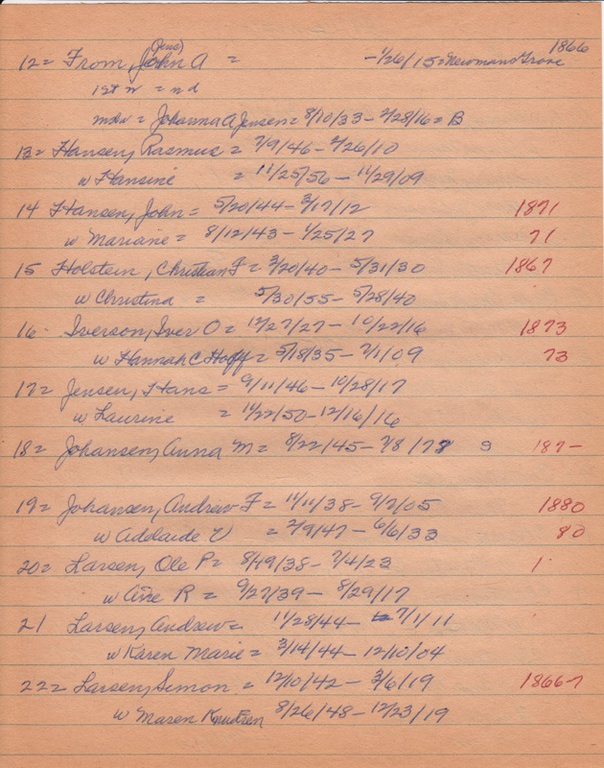 12= From, John A = (Jens) - 1/26/15 = Newmans Grove 1866
1st w = nd
mdw = Johanna A Jensen = 8/10/33 - 2/28/16 = B
13= Hansen, Rasmus = 7/9/46 - 2/26/10
w Hansine = 11/25/56 - 11/29/09
14 Hansen, John = 5/20/44 - 3/17/12 1871
w Mariane = 8/12/43 - 1/25/27 71
15 Holstein, Christian F = 3/20/40 - 5/31/30 1867
w Christina = 5/30/55 - 5/28/40
16- Iverson, Iver O = 12/27/27 - 10/22/16 1873
w Hannah C Hoff = 5/18/35 - 7/1/09 73
17= Jensen, Hans = 9/11/46 - 10/28/17
w Laurine = 11/22/50 - 12/16/16
18= Johansen, Anna M = 8/22/45 - 7/8/17 S 187-
19= Johansen, Andrew F = 11/11/38 - 9/2/05 1880
w Adelaide V = 2/9/47 - 6/6/33 80
20= Larsen, Ole P = 8/19/38 - 7/4/23 1
w Ane R = 9/27/39 - 8/29/17
21 Larsen, Andrew = 11/28/44 - 7/1/11
w Karen Marie = 3/14/44 - 12/10/04
22= Larsen, Simon = 12/10/42 - 3/6/19 1866-7
w Maren Knudsen 8/26/48 - 12/23/19